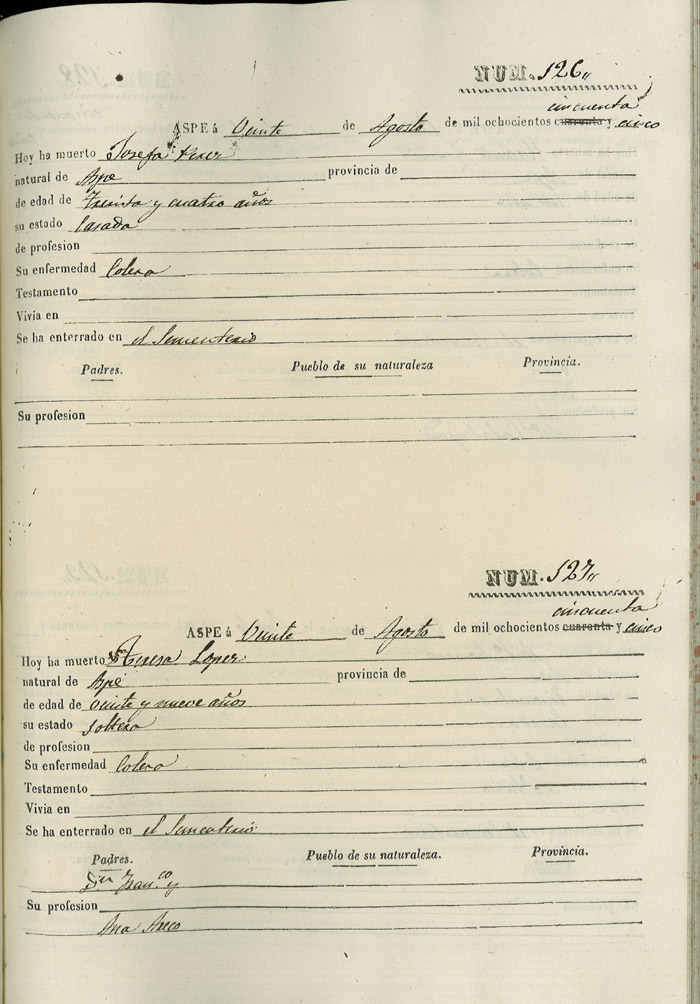 NUM. 126
cincuenta
ASPE á Veinte de Agosto de mil ochocientos cuarenta y cinco
Hoy ha muerto Josefa
natural de Aspe provincia de
de edad de Treinta y cuatro años
su estado Casada
de profesion
Su enfermedad Colera
Testamento
Vivia en
Se ha enterrado en el Sementerio
Padres. Pueblo de su naturaleza Provincia.
Su profesion
NUM. 127
cincuenta
ASPE á Veinte de Agosto de mil ochocientos cuarenta y cinco
Hoy ha muerto Teresa Lopez
natural de Aspe provincia de
de edad de Veinte y nueve años
su estado Soltera
de profesion
Su enfermedad Colera
Testamento
Vivia en
Se ha enterrado en el Sementerio
Padres. Pueblo de su naturaleza. Provincia.
Franco y
Su profesion
Ana